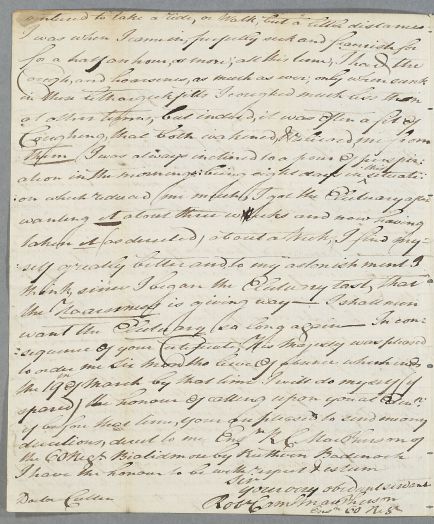 inclined to take a ride, or Walk, but a little distance
I was when I came in, perfectly sick and for
for a half an hour, or more; all this time, I had the
Cough, and hoarseness, as much as ever; only when sunk
in these Lethargick fitts I coughed much less than
at other times, but indeed, it was often a fit of
Coughing, that both wakened, & me from
them I was always inclined to a pain & perspir-
ation in the morning: being eight days in situati-
on which reduced me much, I got the Electuary after
wanting it about three weeks and now having
taken it (as directed) about a Week, I find my-
self greatly better and to my astonishment I
think since I began the Electuary last, that
the Hoarseness is giving way — I shall never
want the Electuary so long again — In con-
sequence of your Certificate, His Majesty was pleased
to order me Six Months leave of absence which ends
the 19th of March by that time I will do myself (if
spared) the honour of calling upon you at Edinr
if before that time, your are pleased to send me any
directions, direct to me Ensn R. C. MacPherson of
the 60 Regt Biallidmore by Ruthven Badenoch
I have the honour to be with respect & esteem
Sir
Your very obedient servant
Robt MacPherson
Ensn 60 Regt
Doctor Cullen